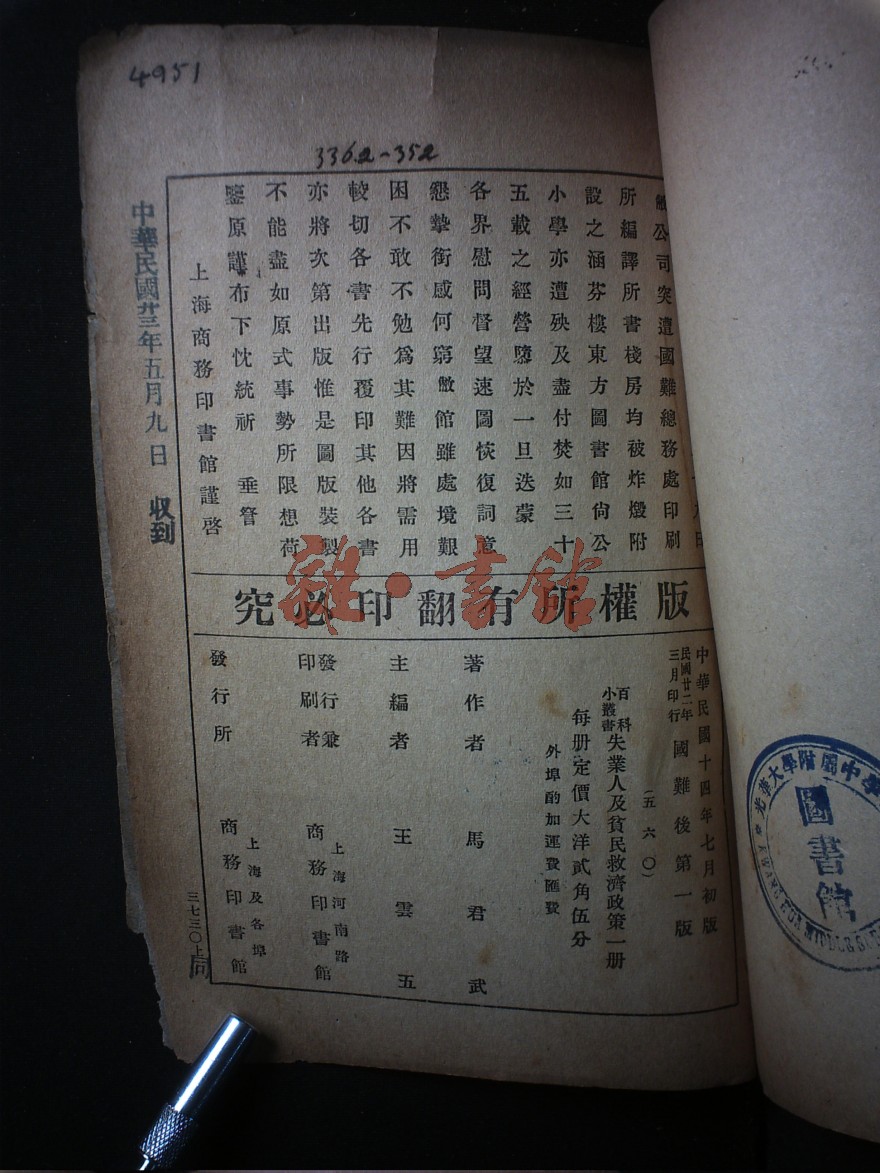 4951
3362-352
敝公司突遭國難總務處印刷
所編譯所書棧房均被炸燬附
設之涵芬樓東方圖書館尙公
小學亦遭殃及盡付焚如三十
五載之經營隳於一旦迭蒙
各界慰問督望速圖恢復詞意
懇摯銜感何窮敝館雖處境艱
困不敢不勉爲其難因將需用
較切各書先行覆印其他各書
亦將次第出版惟是圖版裝製
不能盡如原式事勢所限想荷
鑒原謹布下忱統祈 垂詧
上海商務印書館謹啓
中華民國廿三年五月九日 收到
版權所有翻印必究
雜·書館
中華民國十四年七月初版
民國廿二年三月印行 國難後第一版
(五六〇)
百科小叢書 失業人及貧民救濟政策一册
每册定價大洋貳角伍分
外埠酌加運費匯費
著作者 馬君武
主編者 王雲五
發行兼印刷者 上海河南路 商務印書館
發行所 上海及各埠 商務印書館
三七三〇上
同
光華大學附屬中學
圖書館